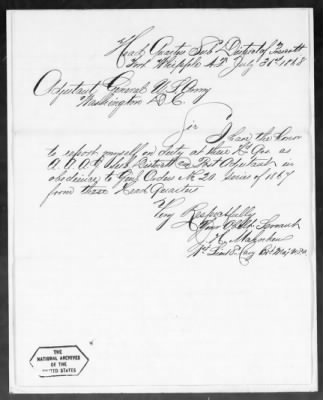 Head Quarters Sub-District of Prescott
Fort Whipple A.T. July 31st 1868
Adjutant General U.S. Army
Washington D.C.
Sir I have the honor
to report myself on duty at these Hd Qrs. as
A.A.A.G. Post Adjutant in
obedience to Genl Orders No. 20 series of 1867
from these Head Quarters
Very Respectfully
Your Obdt. Servant
1st Lieut 8" Cavy Bvt Maj U.S.A.
THE
NATIONAL ARCHIVES
OF THE
UNITED STATES